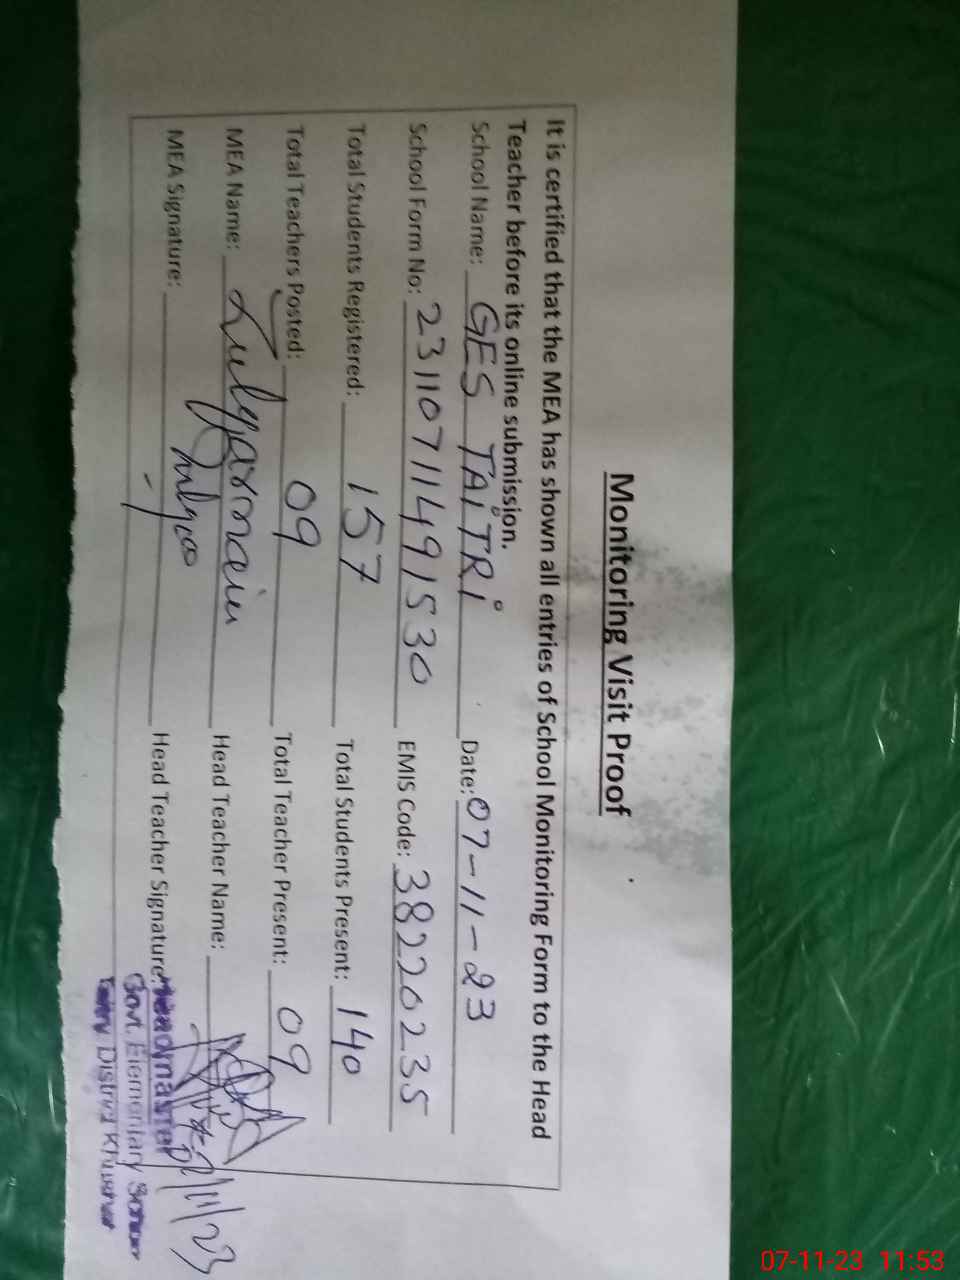 Monitoring Visit Proof
It is certified that the MEA has shown all entries of School Monitoring Form to the Head
Teacher before its online submission.
School Name: GES TAITRI Date: 07-11-23
School Form No: 23110711491530 EMIS Code: 38220235
Total Students Registered: 157 Total Students Present: 140
Total Teachers Posted: 09 Total Teacher Present: 09
MEA Name: Head Teacher Name:
MEA Signature: Head Teacher Signature:
Headmaster
Govt. Elementary School
District Khushab
07-11-23 11:53